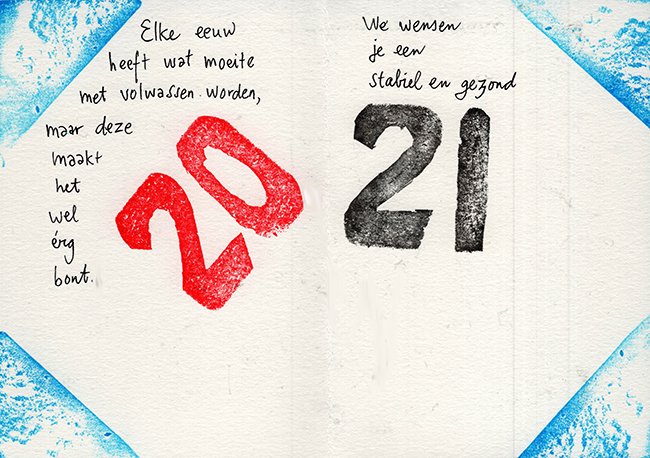 Elke eeuw
heeft wat moeite
met volwassen worden,
maar deze
maakt
het
wel
érg
bont.
20
We wensen
je een
stabiel en gezond
21